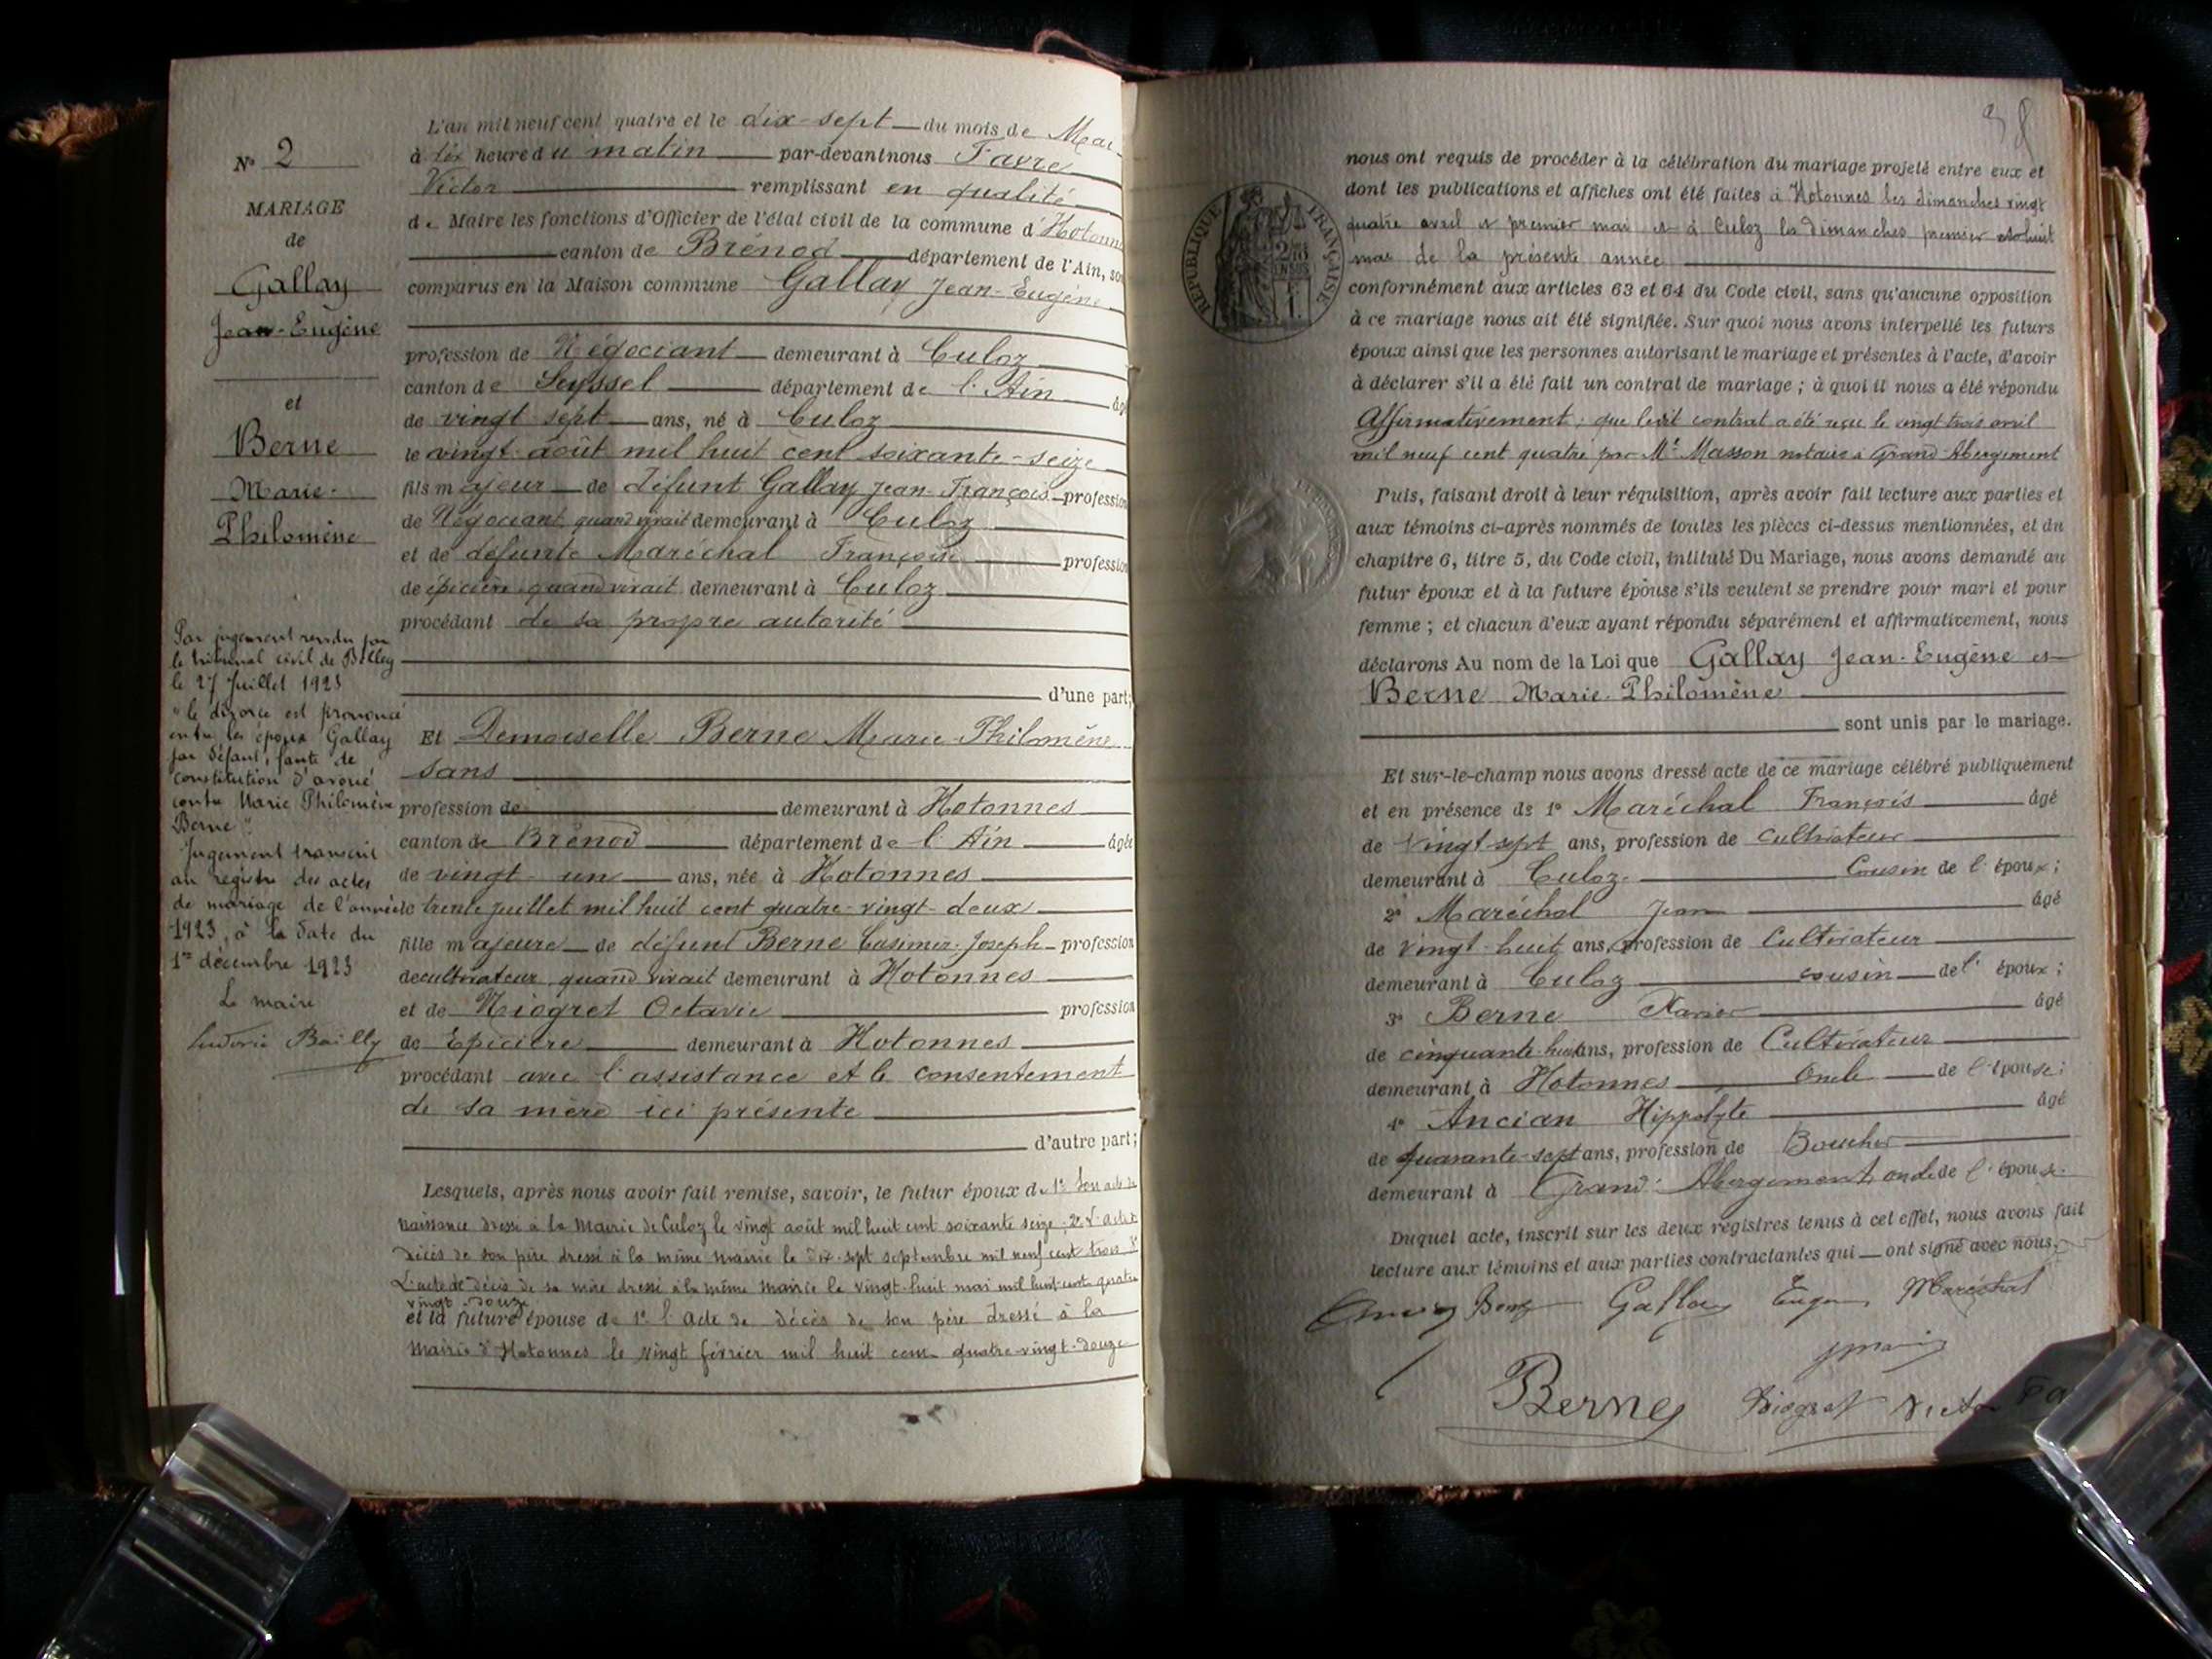 N° 2
MARIAGE
de
Gallay
Jean-Eugène
et
Berne
Marie-
Philomène
Par jugement rendu par
le tribunal civil de Belley
le 27 Juillet 1923
"le divorce est prononcé
entre les époux Gallay
par défaut, faute de
constitution d'avoué
contre Marie Philomène
Berne".
Jugement transcrit
au registre des actes
de mariage de l'année
1923, à la date du
1er décembre 1923
Le maire
Bailly
L'an mil neuf cent quatre et le dix-sept du mois de Mai
à dix heure du matin par-devant nous Favre
Victor remplissant en qualité
de Maire les fonctions d'Officier de l'état civil de la commune d'Hotonnes
canton de Brénod département de l'Ain, sont
comparus en la Maison commune Gallay Jean-Eugène
profession de Négociant demeurant à Culoz
canton de Seyssel département de l'Ain âgé
de vingt sept ans, né à Culoz
le vingt août mil huit cent soixante-seize
fils majeur de défunt Gallay Jean-François profession
de Négociant quand vivait demeurant à Culoz
et de défunte Maréchal Françoise profession
de épicière quand vivait demeurant à Culoz
procédant de sa propre autorité
d'une part;
Et Demoiselle Berne Marie-Philomène
sans
profession de demeurant à Hotonnes
canton de Brénod département de l'Ain âgée
de vingt-un ans, née à Hotonnes
le trente juillet mil huit cent quatre-vingt-deux
fille majeure de défunt Berne Casimir-Joseph profession
de cultivateur quand vivait demeurant à Hotonnes
et de Niogret Octavie profession
de Epicière demeurant à Hotonnes
procédant avec l'assistance et le consentement
de sa mère ici présente
d'autre part;
Lesquels, après nous avoir fait remise, savoir, le futur époux de 1° Son acte de
naissance dressé à la Mairie de Culoz le vingt août mil huit cent soixante seize; 2° L'acte de
décès de son père dressé à la même mairie le dix-sept septembre mil neuf cent trois 3°
L'acte de décès de sa mère dressé à la même mairie le vingt-huit mai mil huit-cent quatre
vingt-douze
et la future épouse de 1° l'acte de décès de son père dressé à la
mairie d'Hotonnes le vingt février mil huit cent quatre-vingt-douze
38
RÉPUBLIQUE FRANÇAISE
nous ont requis de procéder à la célébration du mariage projeté entre eux et
dont les publications et affiches ont été faites à Hotonnes les dimanches vingt
quatre avril et premier mai et à Culoz les dimanches premier et huit
mai de la présente année
conformément aux articles 63 et 64 du Code civil, sans qu'aucune opposition
à ce mariage nous ait été signifiée. Sur quoi nous avons interpellé les futurs
époux ainsi que les personnes autorisant le mariage et présentes à l'acte, d'avoir
à déclarer s'il a été fait un contrat de mariage; à quoi il nous a été répondu
Affirmativement; que ledit contrat a été reçu le vingt trois avril
mil neuf cent quatre par Me Masson notaire à Grand-Abergement
Puis, faisant droit à leur réquisition, après avoir fait lecture aux parties et
aux témoins ci-après nommés de toutes les pièces ci-dessus mentionnées, et du
chapitre 6, titre 5, du Code civil, intitulé Du Mariage, nous avons demandé au
futur époux et à la future épouse s'ils veulent se prendre pour mari et pour
femme; et chacun d'eux ayant répondu séparément et affirmativement, nous
déclarons Au nom de la Loi que Gallay Jean-Eugène et
Berne Marie-Philomène
sont unis par le mariage.
Et sur-le-champ nous avons dressé acte de ce mariage célébré publiquement
et en présence de 1° Maréchal François âgé
de vingt-sept ans, profession de cultivateur
demeurant à Culoz Cousin de l'époux;
2° Maréchal Jean âgé
de vingt-huit ans, profession de Cultivateur
demeurant à Culoz cousin de l'époux;
3° Berne Xavier âgé
de cinquante-huit ans, profession de Cultivateur
demeurant à Hotonnes Oncle de l'épouse;
4° Ancian Hippolyte âgé
de quarante-sept ans, profession de Boucher
demeurant à Grand-Abergement oncle de l'épouse.
Duquel acte, inscrit sur les deux registres tenus à cet effet, nous avons fait
lecture aux témoins et aux parties contractantes qui ont signé avec nous.
Gallay Eugène Maréchal
Berne Niogret Victor Fa